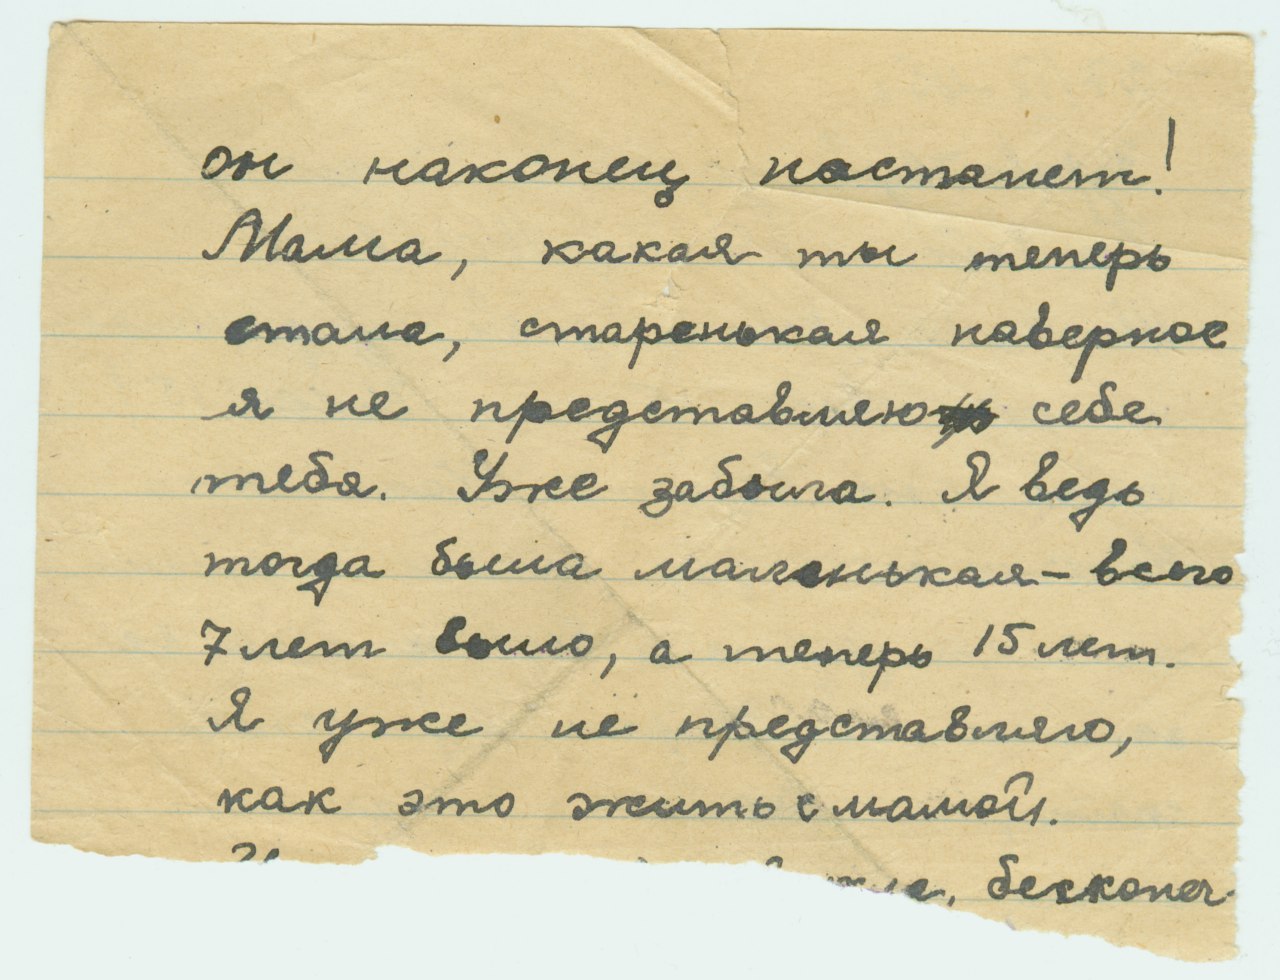 он наконец настанет!
Мама, какая ты теперь
стала, старенькая наверное
я не представляю себе
тебя. Уже забыла. Я ведь
тогда была маленькая – всего
7 лет было, а теперь 15 лет.
Я уже не представляю,
как это жить с мамой.
бесконеч-